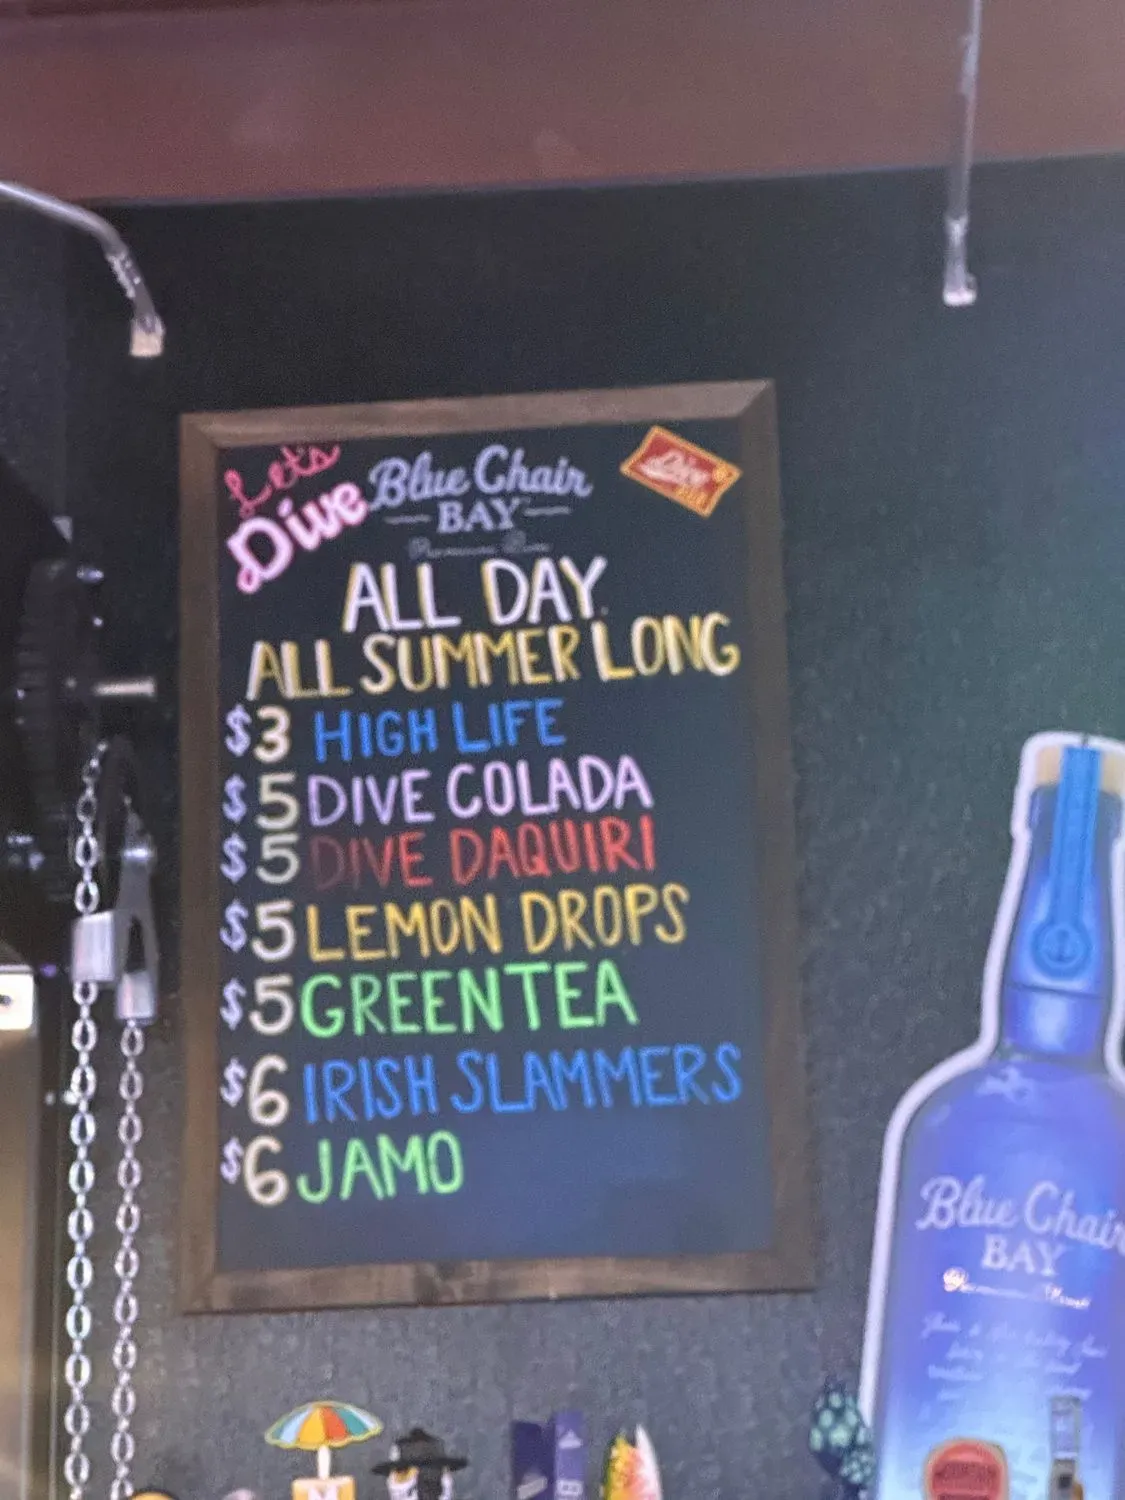 Let's
Dive
Blue Chair
BAY
Premium Rum
Dive
BAR
ALL DAY
ALL SUMMER LONG
$3 HIGH LIFE
$5 DIVE COLADA
$5 DIVE DAQUIRI
$5 LEMON DROPS
$5 GREEN TEA
$6 IRISH SLAMMERS
$6 JAMO
Blue Chair
BAY